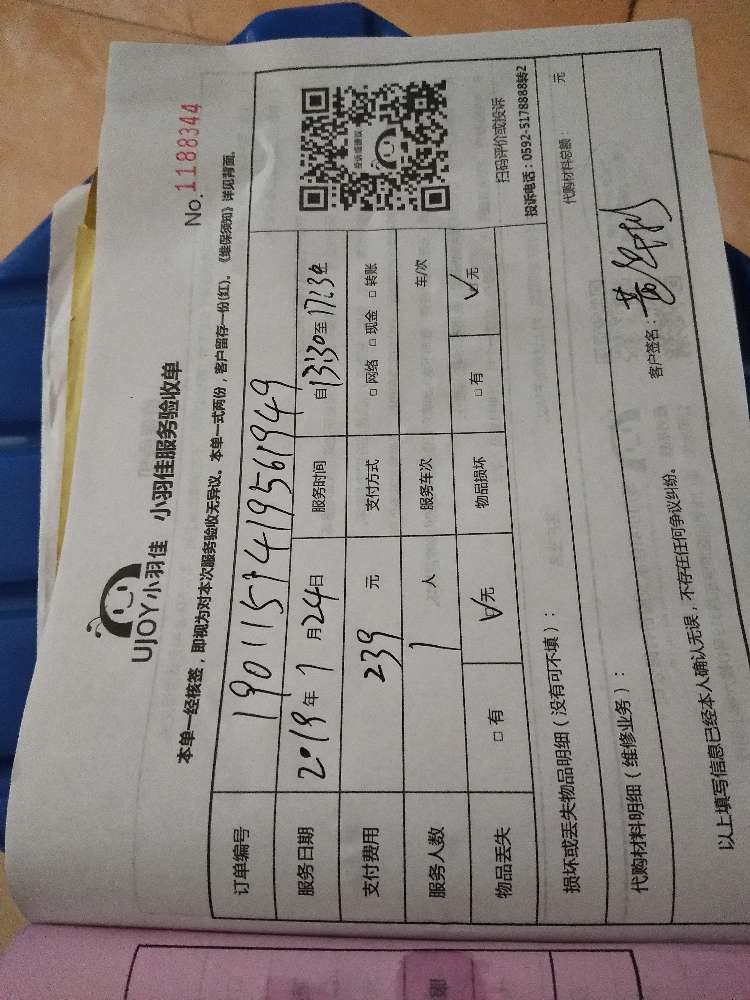 UJOY小羽佳 小羽佳服务验收单
No.1188344
本单一经核签，即视为对本次服务验收无异议。本单一式两份，客户留存一份(红)。《维保须知》详见背面。
订单编号 1901157419561949
服务日期 2019年1月24日 服务时间 自13:30至17:30
支付费用 239元 支付方式 □网络 □现金 □转账
服务人数 1人 服务车次 车/次
物品丢失 □有 √无 物品损坏 □有 √无
投诉或建议
扫码评价或投诉
投诉电话：0592-5178888转2
损坏或丢失物品明细（没有可不填）：
代购材料明细（维修业务）： 代购材料总额： 元
以上填写信息已经本人确认无误，不存在任何争议纠纷。 客户签名：